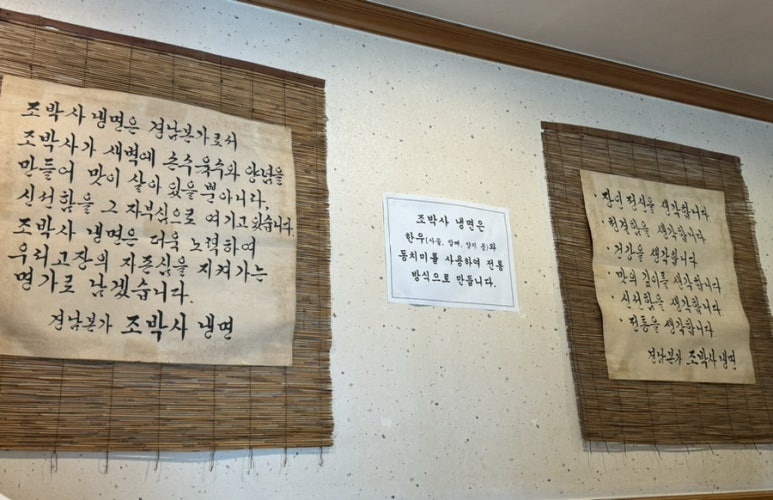 조박사 냉면은 경남본가로서
조박사가 새벽에 손수육수와 양념을
만들어 맛이 살아 있을 뿐아니라,
신선함을 그 자부심으로 여기고있습니다.
조박사 냉면은 더욱 노력하여
우리고장의 자존심을 지켜가는
명가로 남겠습니다.
경남본가 조박사 냉면
조박사 냉면은
한우(사골, 잡뼈, 양지 등)와
동치미를 사용하여 전통
방식으로 만듭니다.
· 장인정신을 생각합니다
· 청결함을 생각합니다
· 건강을 생각합니다
· 맛의 깊이를 생각합니다
· 신선함을 생각합니다
· 전통을 생각합니다
경남본가 조박사 냉면